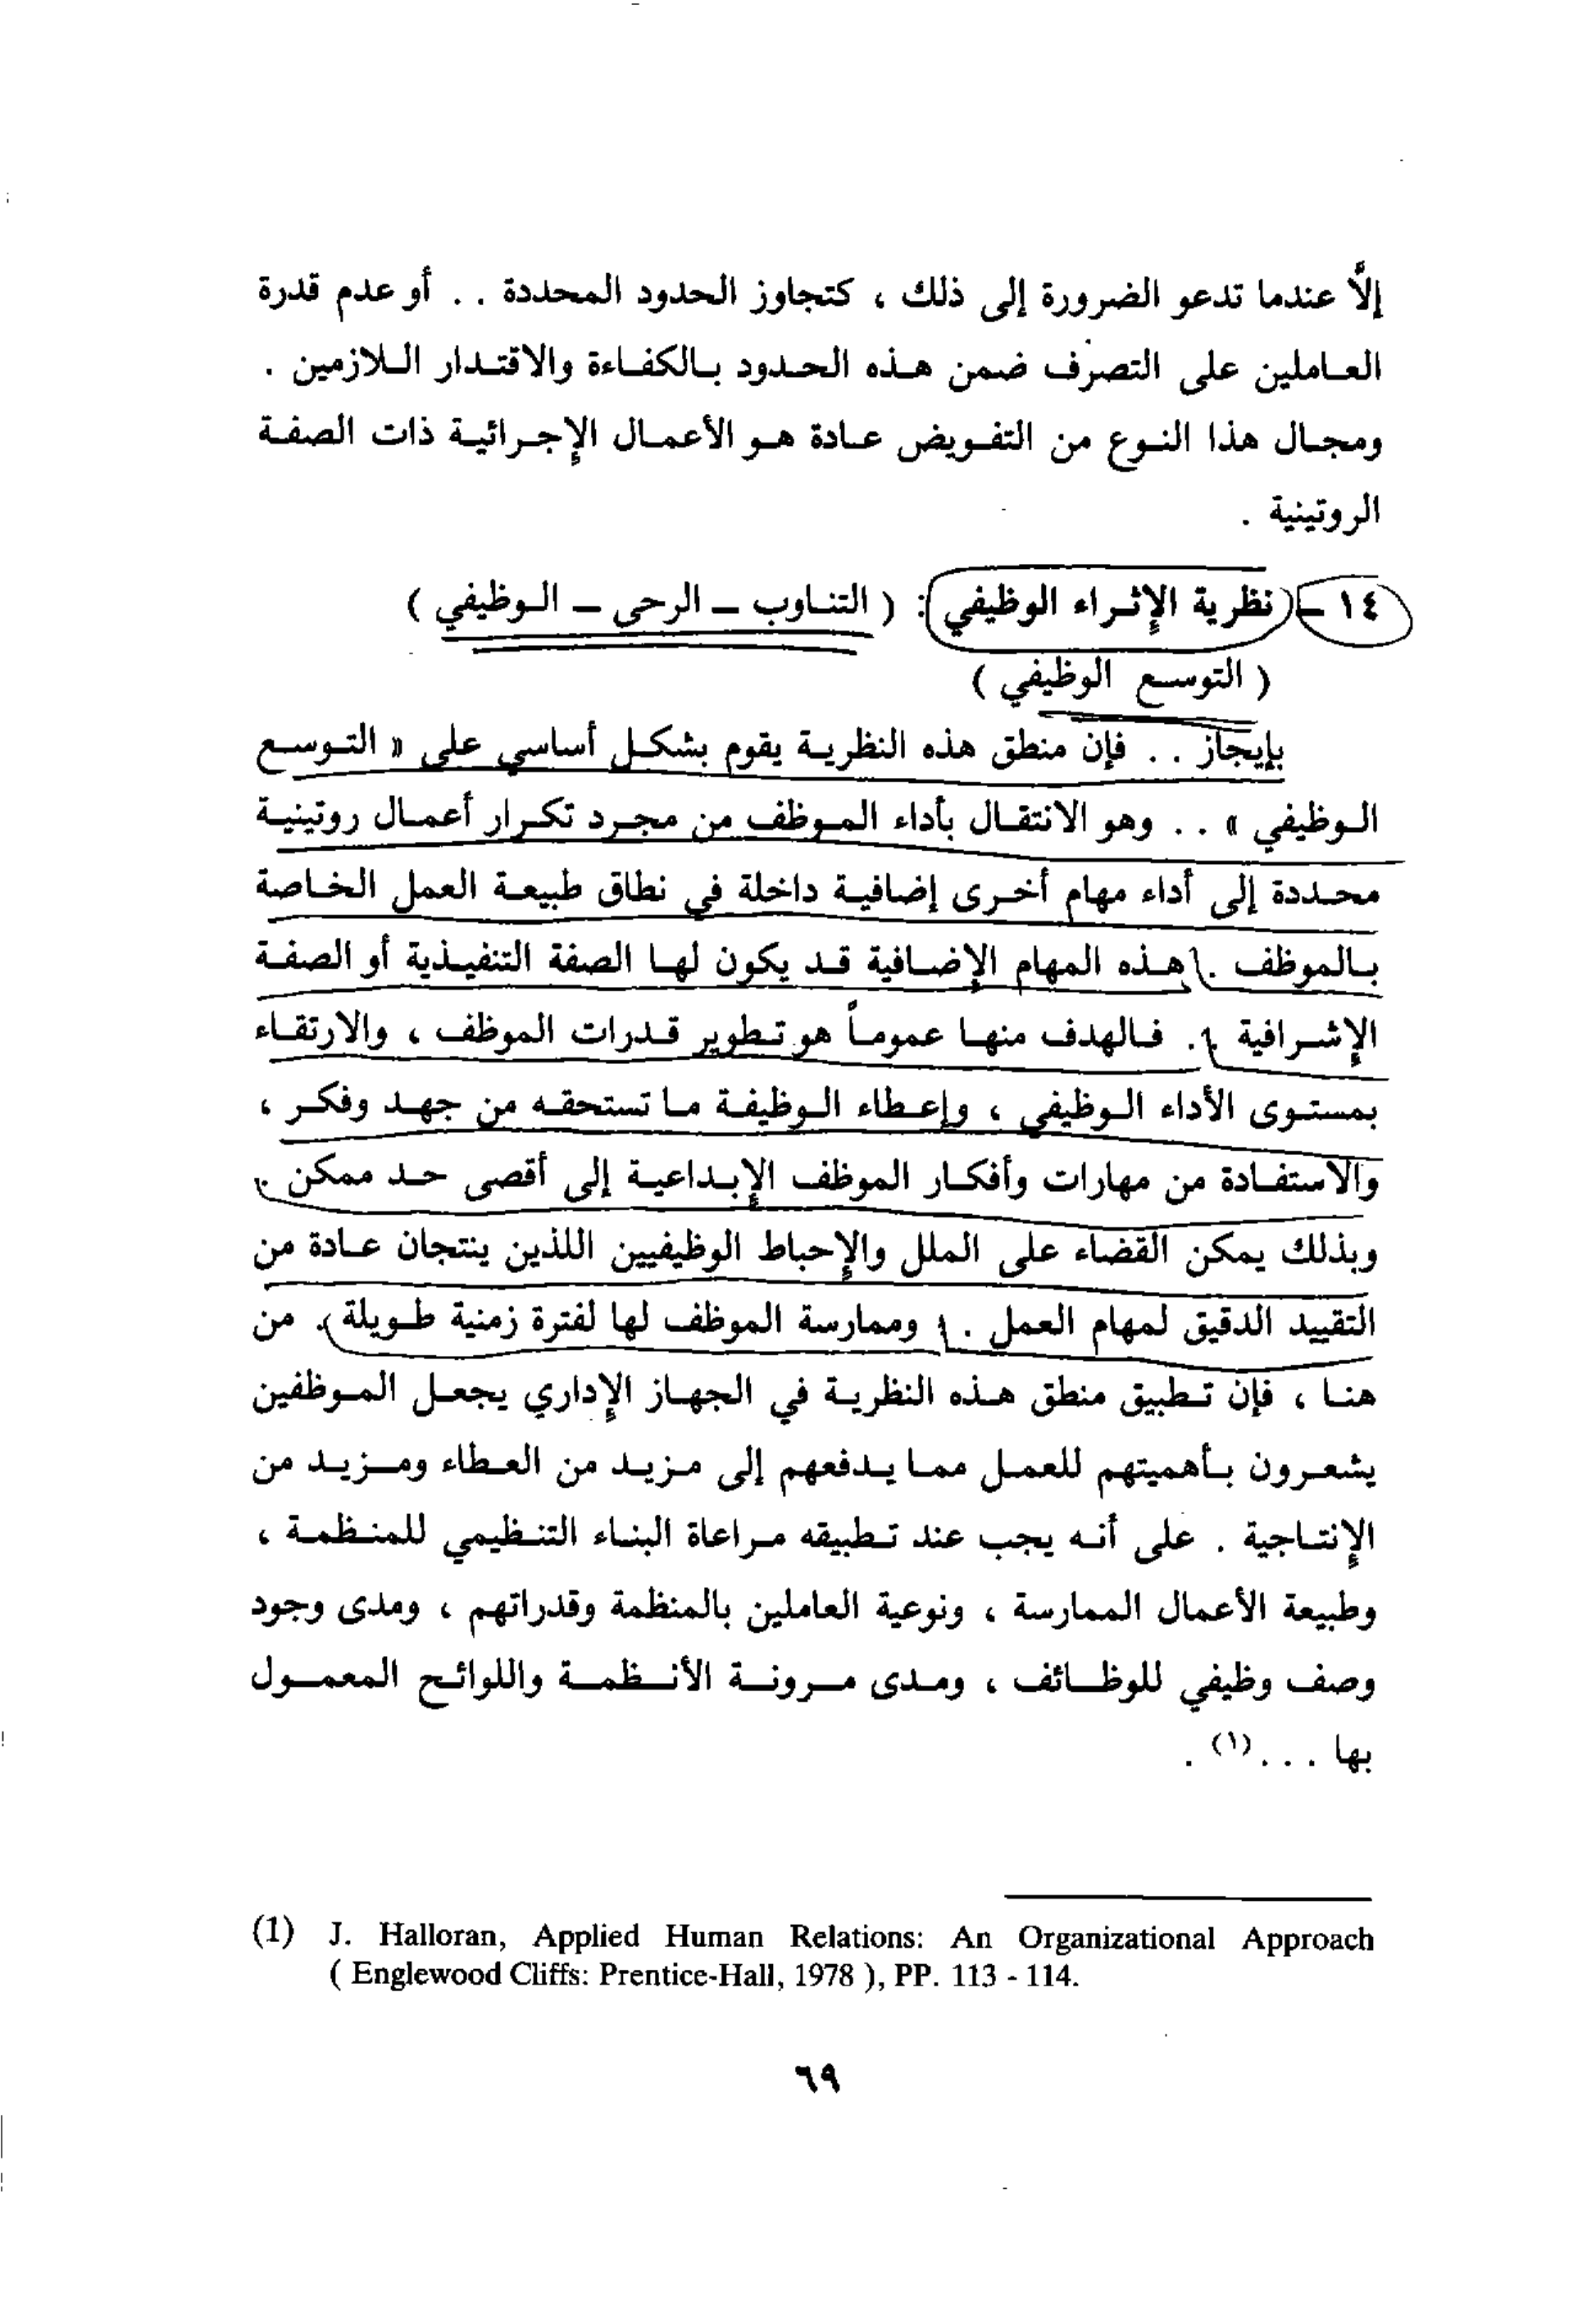 إلاَّ عندما تدعو الضرورة إلى ذلك ، كتجاوز الحدود المحددة . . أو عدم قدرة
العاملين على التصرف ضمن هذه الحدود بالكفاءة والاقتدار اللازمين .
ومجال هذا النوع من التفويض عادة هو الأعمال الإجرائية ذات الصفة
الروتينية .
١٤ – نظرية الإثراء الوظيفي : ( التناوب – الرحى – الوظيفي )
( التوسع الوظيفي )
بإيجاز . . فإن منطق هذه النظرية يقوم بشكل أساسي على « التوسع
الوظيفي » . . وهو الانتقال بأداء الموظف من مجرد تكرار أعمال روتينية
محددة إلى أداء مهام أخرى إضافية داخلة في نطاق طبيعة العمل الخاصة
بالموظف . هذه المهام الإضافية قد يكون لها الصفة التنفيذية أو الصفة
الإشرافية . فالهدف منها عموماً هو تطوير قدرات الموظف ، والارتقاء
بمستوى الأداء الوظيفي ، وإعطاء الوظيفة ما تستحقه من جهد وفكر ،
والاستفادة من مهارات وأفكار الموظف الإبداعية إلى أقصى حد ممكن .
وبذلك يمكن القضاء على الملل والإحباط الوظيفيين اللذين ينتجان عادة من
التقييد الدقيق لمهام العمل . وممارسة الموظف لها لفترة زمنية طويلة . من
هنا ، فإن تطبيق منطق هذه النظرية في الجهاز الإداري يجعل الموظفين
يشعرون بأهميتهم للعمل مما يدفعهم إلى مزيد من العطاء ومزيد من
الإنتاجية . على أنه يجب عند تطبيقه مراعاة البناء التنظيمي للمنظمة ،
وطبيعة الأعمال الممارسة ، ونوعية العاملين بالمنظمة وقدراتهم ، ومدى وجود
وصف وظيفي للوظائف ، ومدى مرونة الأنظمة واللوائح المعمول
بها . . .(١) .
(1) J. Halloran, Applied Human Relations: An Organizational Approach
( Englewood Cliffs: Prentice-Hall, 1978 ), PP. 113 - 114.
٦٩